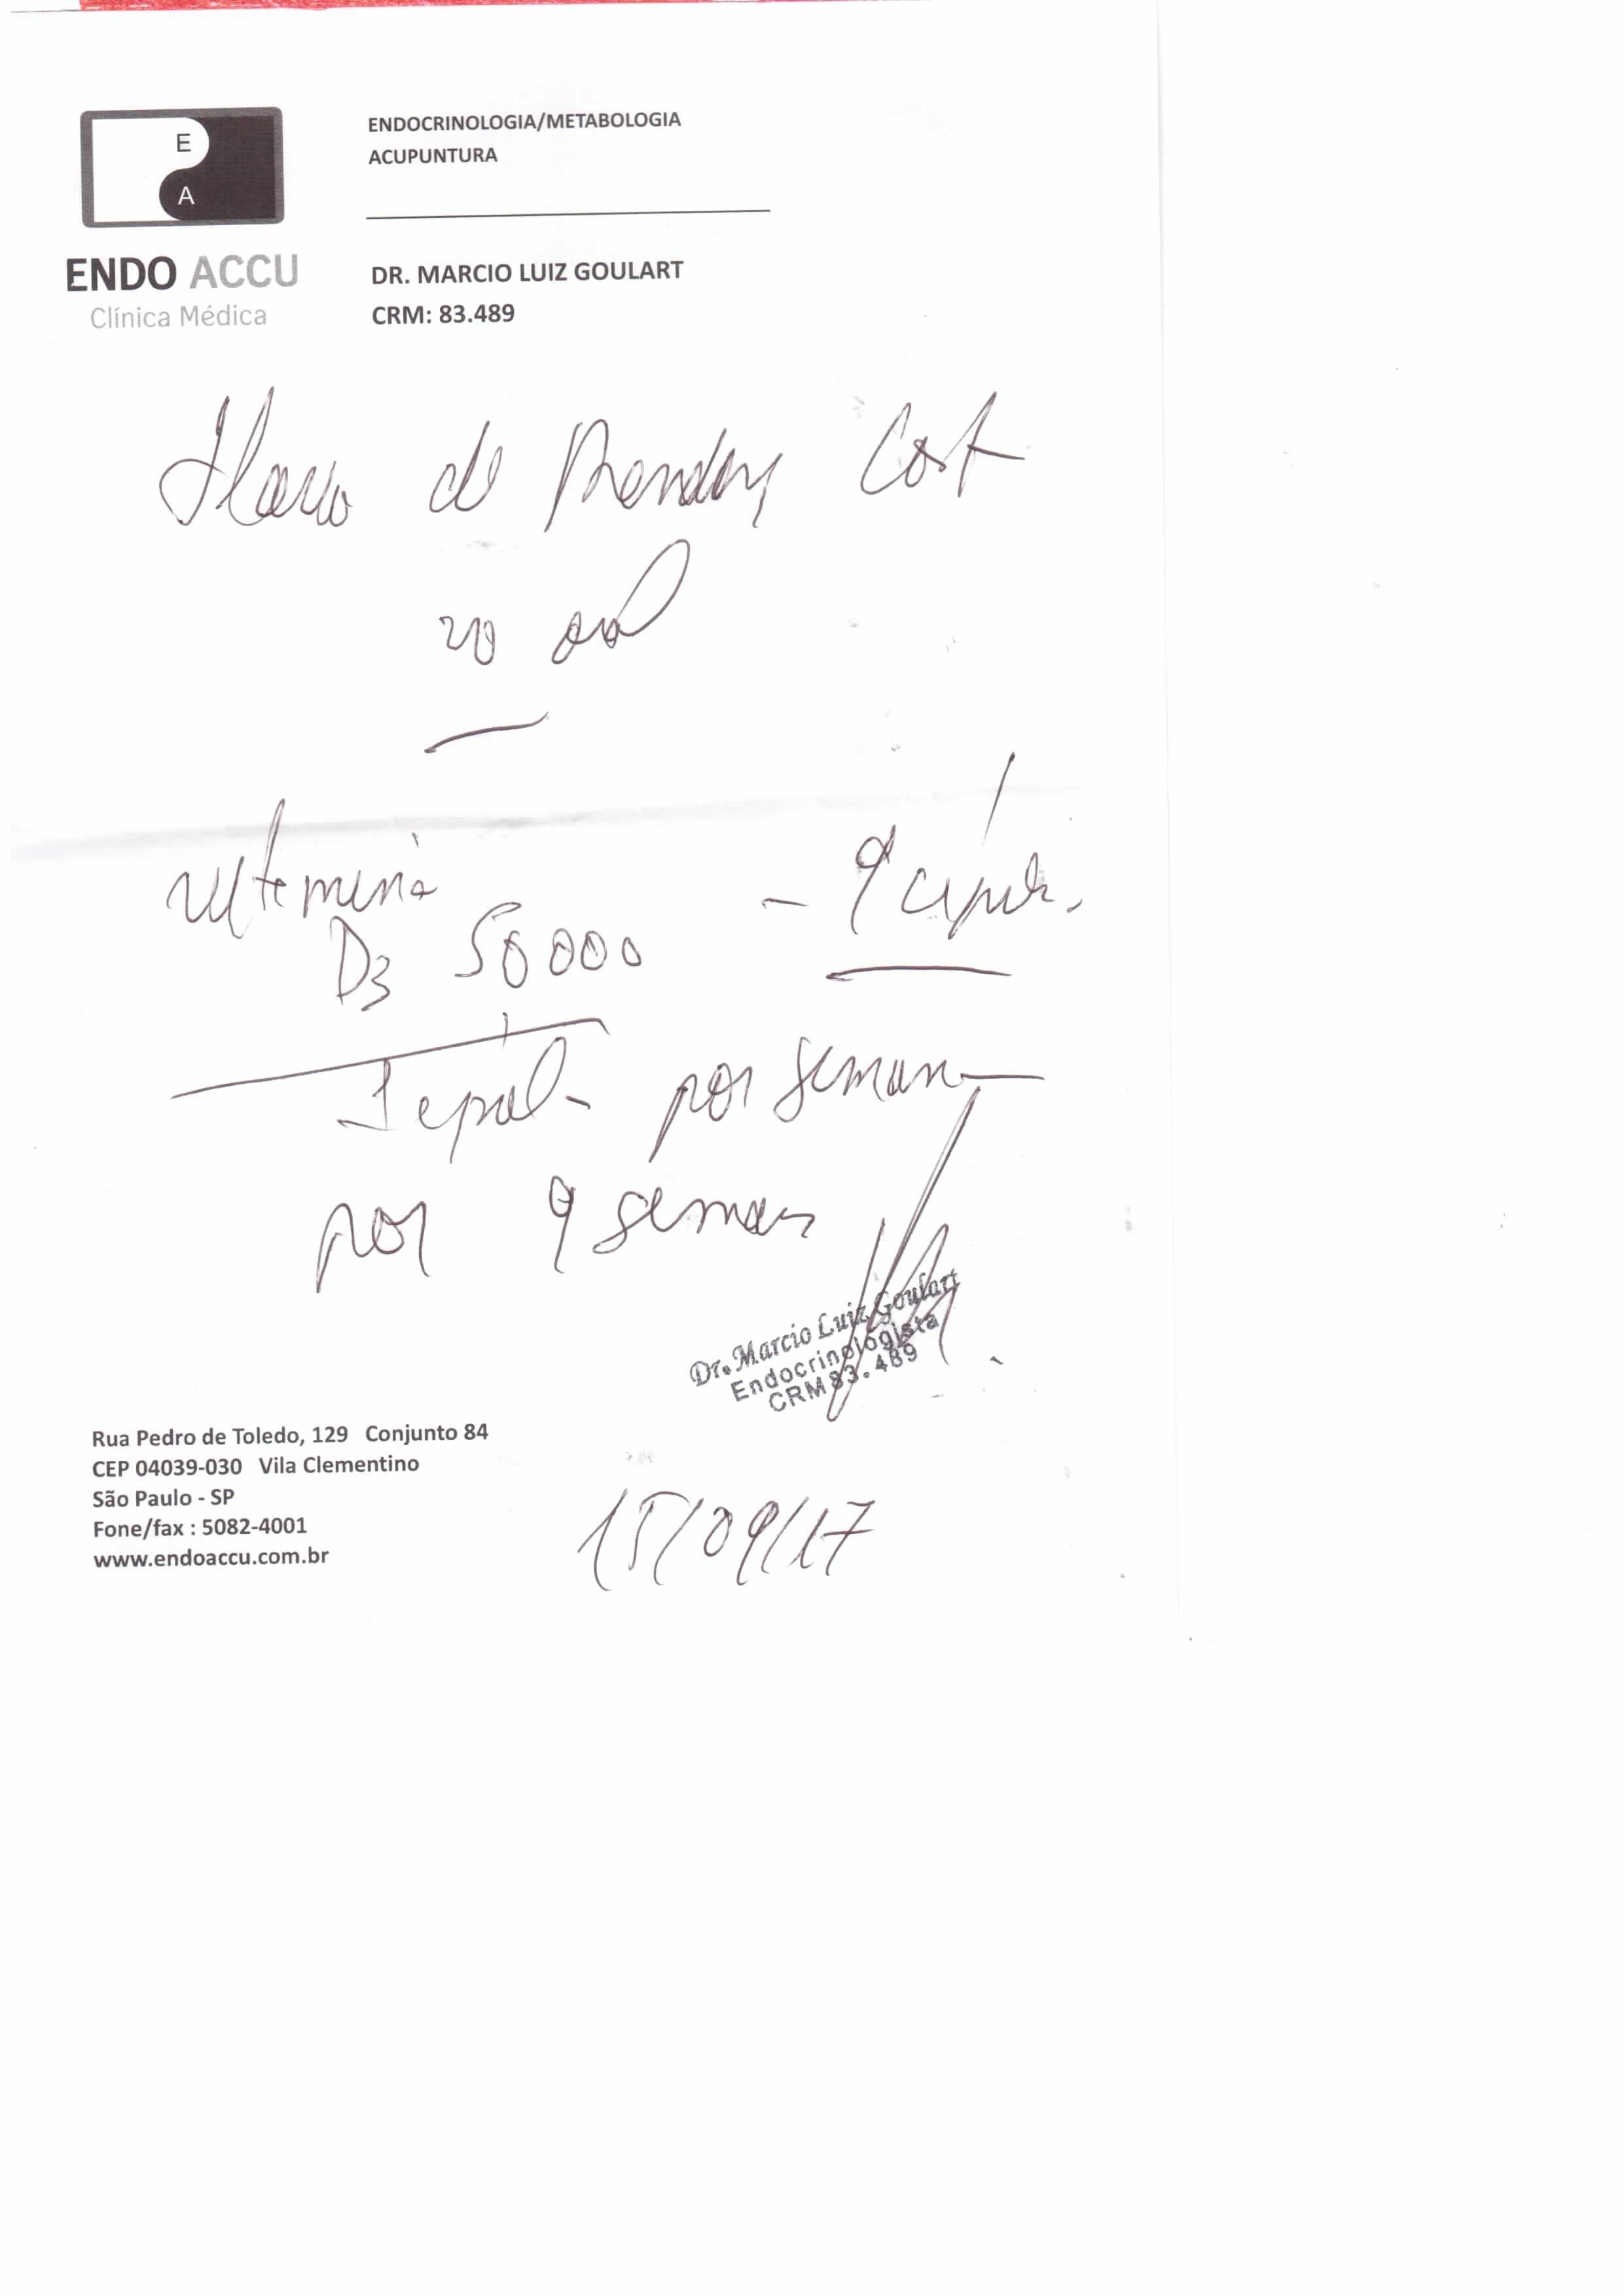 E
A
ENDO ACCU
Clínica Médica
ENDOCRINOLOGIA/METABOLOGIA
ACUPUNTURA
DR. MARCIO LUIZ GOULART
CRM: 83.489
de Cost
vitamina
D3 50000 - 9
1 por semana
por 9 semanas
Dr. Marcio Luiz Goulart
Endocrinologista
CRM 83.489
Rua Pedro de Toledo, 129 Conjunto 84
CEP 04039-030 Vila Clementino
São Paulo - SP
Fone/fax : 5082-4001
www.endoaccu.com.br
15/09/17